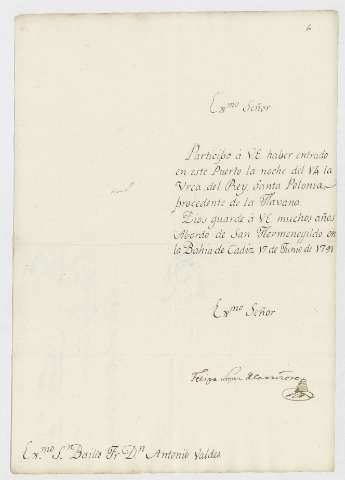 6
Exmo Señor
Participo à VE haber entrado
en este Puerto la noche del 14 la
Vrca del Rey Santa Polonia
procedente de la Havana.
Dios guarde á VE muchos años
Abordo de San Hermenegildo en
la Bahia de Cadiz 17 de Junio de 1791
Exmo Señor
Felipe Lopez
Exmo Sn Bailio Fr. Dn Antonio Valdes